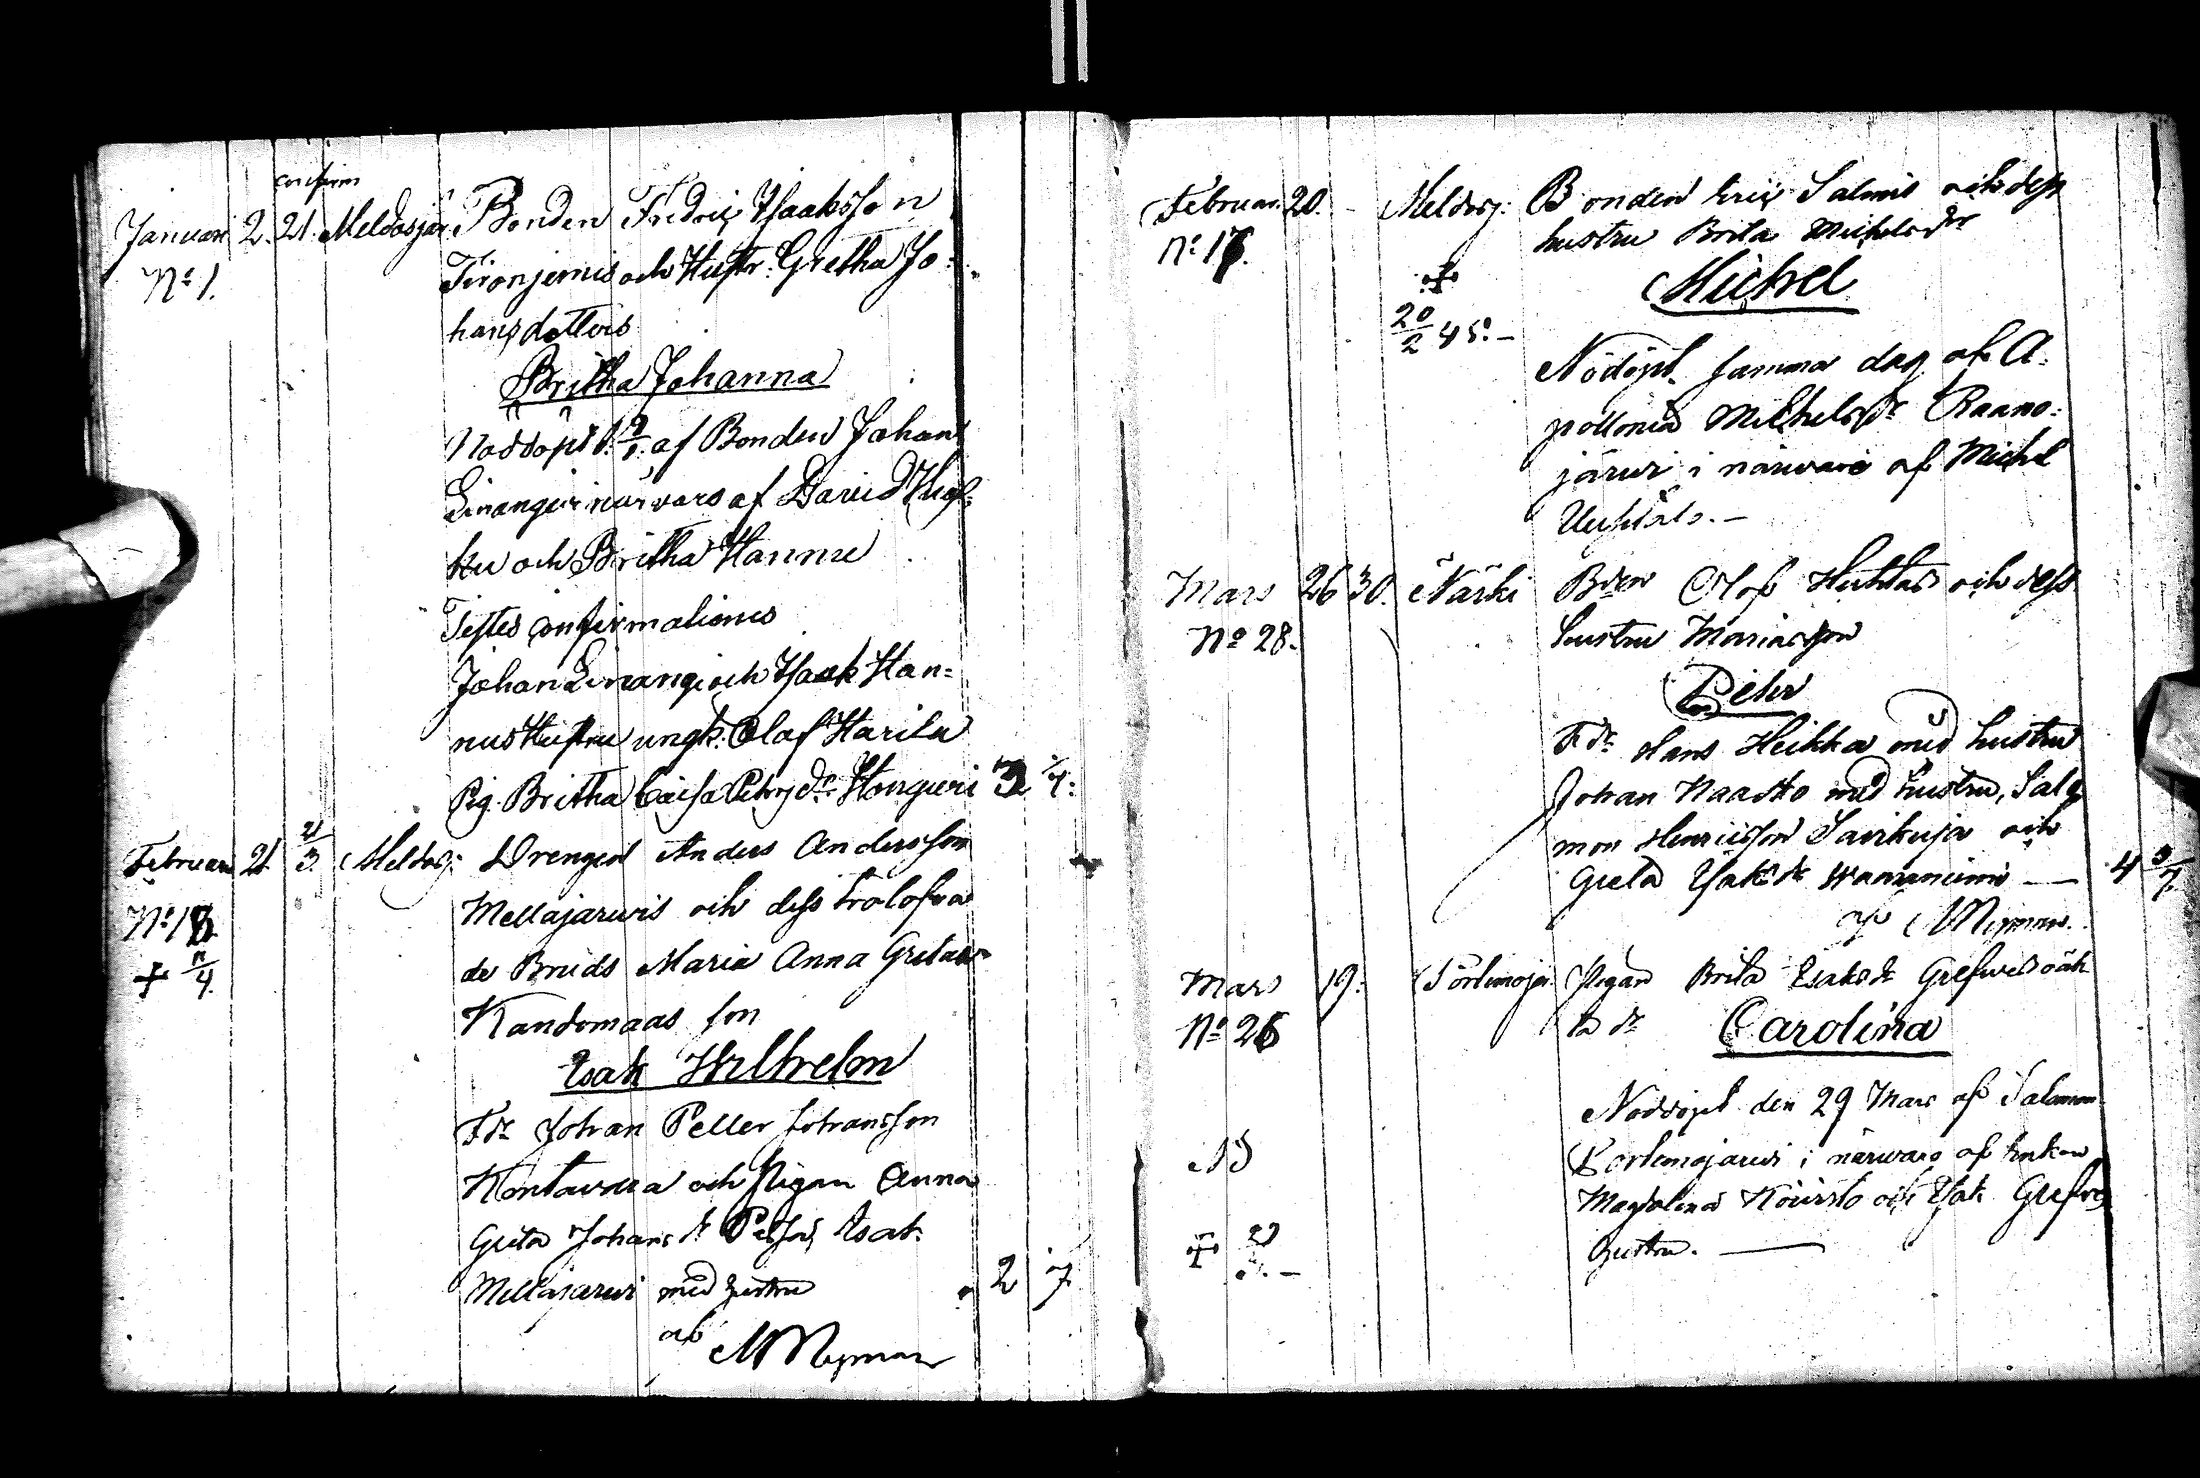 confirm
Januari 2. 21. Meldosjär. Bonden Fredric Isaaksson
No 1. Tironjemis och Hustr: Gretha Jo-
hansdotters
Britha Johanna
Nöddöpt d. 2/1. af Bonden Johan
Linangi i närvaro af David
ku och Britha Hannu
Testes confirmationis
Johan Linangi och Isaak Han-
nus Hustru ungk: Olaf Harila
Pig. Britha Caisa Pehrsdr. 3 1/4:
Februari 21. 21/3. Meldosj: Drengen Anders Andersson
No 18 Mellajärwis och dess trolofva
+ 11/4. de Bruds Maria Anna Gretasdr
Kandomaas son
Isak Wilhelm
Fdr Johan Peller Johansson
Kontavaara och Pigan Anna
Greta Johans dr Isak
Mellajärwi med hustru 2 7
af M Nyman
Februari 20. Meldosj: Bonden Eric Salmis och dess
No 17. hustru Brita Michelsdr
+ Michel
20/2 45. –
Nöddöpt. samma dag af A-
pollonia Michelsdr Raano-
järwi i närvaro af Michel
Mars 26 30. Närki Bden Olof Huhtas och dess
No 28. hustru Marias son
Pehr
Fdr Hans Heikka med hustru
Johan Naasko med hustru, Salo
mon Henricsson Savikuja och
Greta Isaksdr — 4 3/7.
af M Nyman.
Mars 19. Törlemojär. Pigan Brita Isaksdr Grefwes oäk
No 26 ta dr Carolina
Nöddöpt den 29 Mars af Salomon
Törlemojärwi i närvaro af Enkan
NB Magdalena Koivisto och Isak Grefwes
+ 29 hustru. —